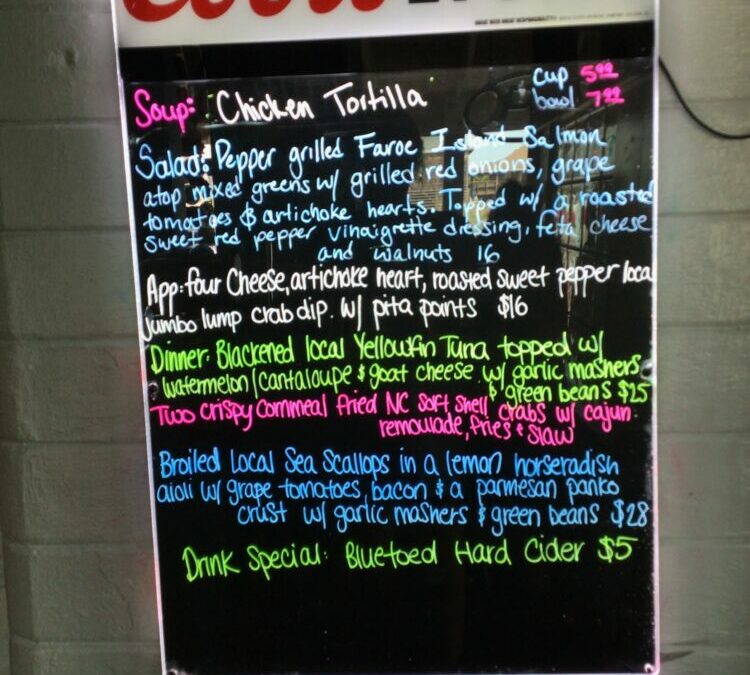 Soup: Chicken Tortilla
cup 5.99
bowl 7.99
Salad: Pepper grilled Faroe Island Salmon
atop mixed greens w/ grilled red onions, grape
tomatoes & artichoke hearts. Topped w/ a roasted
sweet red pepper vinaigrette dressing, feta cheese
and walnuts 16
App: four Cheese, artichoke heart, roasted sweet pepper local
jumbo lump crab dip. w/ pita points $16
Dinner: Blackened local Yellowfin Tuna topped w/
watermelon/cantaloupe & goat cheese w/ garlic mashers
& green beans $25
Two crispy cornmeal fried NC soft shell crabs w/ cajun
remoulade, fries & slaw
Broiled Local Sea Scallops in a lemon horseradish
aioli w/ grape tomatoes, bacon & a parmesan panko
crust w/ garlic mashers & green beans $28
Drink Special: Bluetoed Hard Cider $5